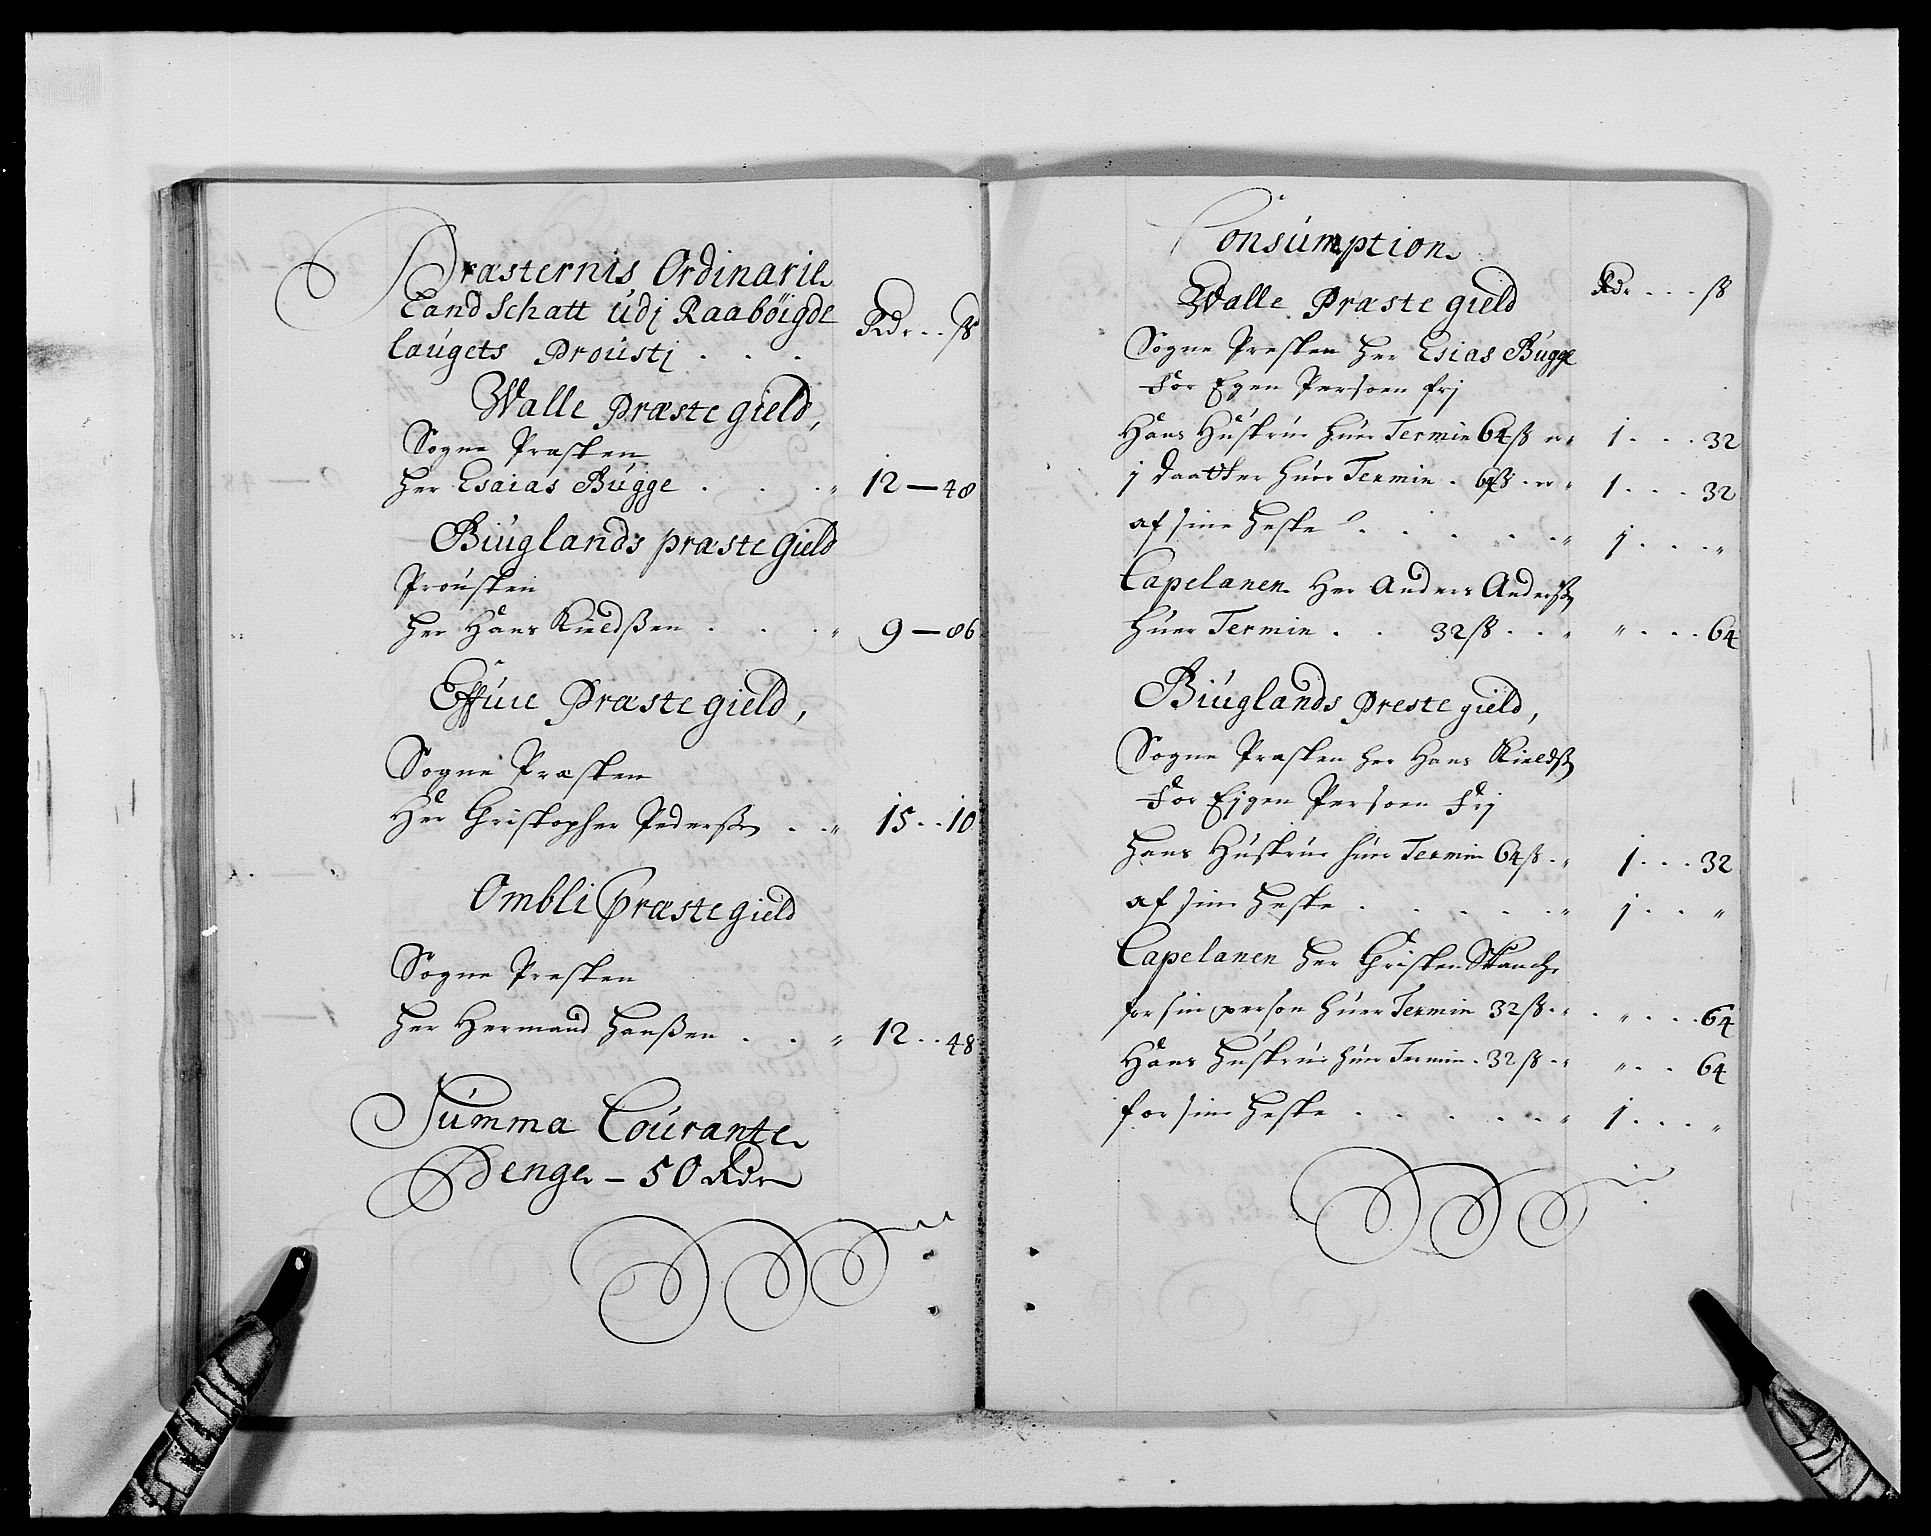 Præsternis Ordinarie
Land Schatt udj Raabøigde
Rdr . . ß
laugets Proustj . . .
Walle Præste gield,
Sogne Præsten
Her Esaias Bugge . . . „ 12 — 48
Biuglands præste Gield
Prousten
Her Hans Kieldßen . . . „ 9 — 86
Effuie Præste gield,
Sogne Præsten
Her Christopher Pederßen . . „ 15 . . 10
Ombli Præste gield
Sogne Presten
Her Hermand Hanßen . . . „ 12 . . 48
Summa Courante
Penge — 50 Rdr
Consumption
Rdr . . . ß
Walle Præste gield
Sogne Presten Her Esias Bugge
For Egen Persoen frj
Hans Hustrue huer Termin 64 ß er „ 1 . . . 32
j Daatter huer Termin . 64 ß . er „ 1 . . . 32
af sine Heste . . . . . „ j . . . „
Capelanen Her Anders Anderß
huer Termin . . 32 ß . . . „ „ . . . 64
Biuglands Preste gield,
Sogne Præsten Her Hans Kieldß
For Ejgen Persoen Frj
Hans Hustrue huer Termin 64 ß . „ 1 . . . 32
af sine Heste . . . . . „ j . . „
Capelanen Her Christen Skanche
for sin person huer Termin 32 ß . „ . „ . . . 64
Hans Hustrue huer Termin . 32 ß . „ „ . . 64
for sine Heste . . . . . . „ 1 . . . „